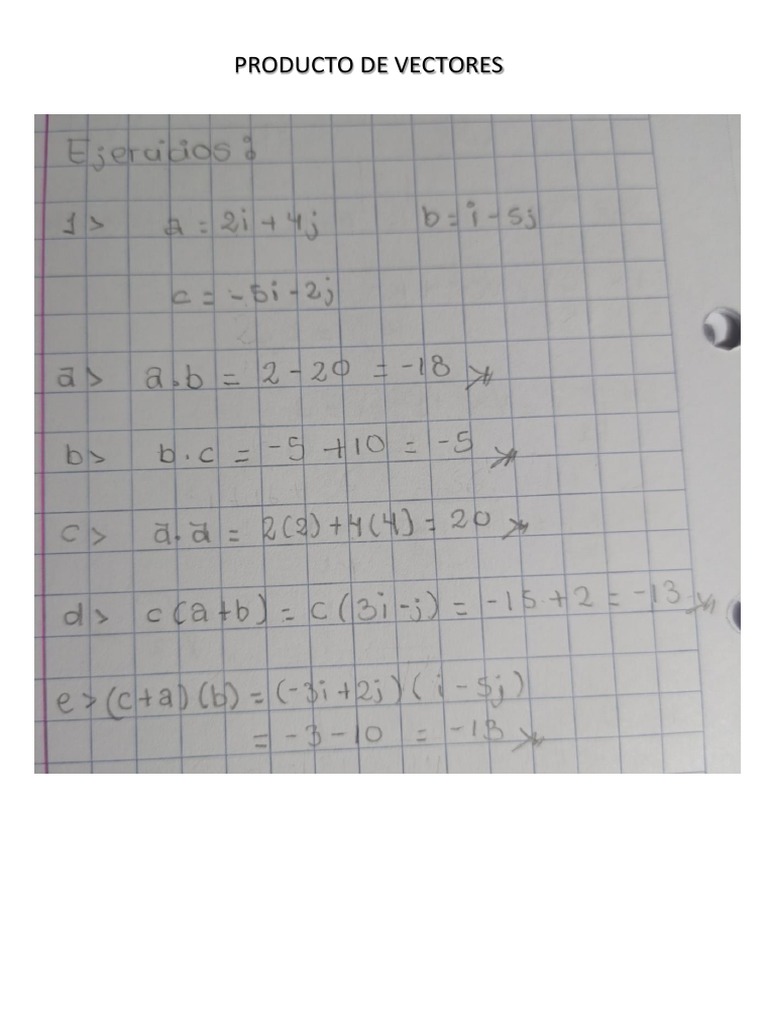 PRODUCTO DE VECTORES
Ejercicios:
1> a = 2i + 4j b = i - 5j
c = -5i - 2j
a> a.b = 2 - 20 = -18
b> b.c = -5 + 10 = -5
c> a.a = 2(2) + 4(4) = 20
d> c(a+b) = c(3i-j) = -15 + 2 = -13
e> (c+a)(b) = (-3i+2j)(i-5j)
= -3 - 10 = -13